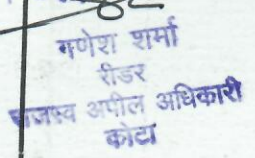 गणेश शर्मा
रीडर
राजस्व अपील अधिकारी
कोटा